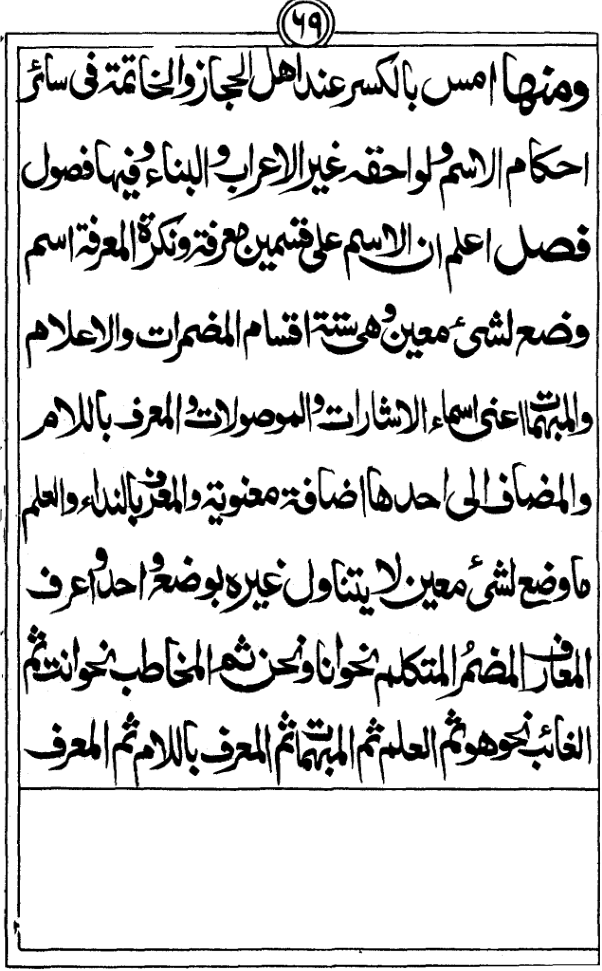 ٦٩
ومنها امس بالكسر عند اهل الحجاز والخاتمة فى سائر
احكام الاسم ولواحقه غير الاعراب والبناء وفيها فصول
فصل اعلم ان الاسم على قسمين معرفة ونكرة المعرفة اسم
وضع لشىء معين وهى ستة اقسام المضمرات والاعلام
والمبهمات اعنى اسماء الاشارات والموصولات والمعرف باللام
والمضاف الى احدها اضافة معنوية والمعرف بالنداء والعلم
ما وضع لشىء معين لا يتناول غيره بوضع واحد واعرف
المعارف المضمُر المتكلم نحو انا ونحن ثم المخاطب نحو انت ثم
الغائب نحو هو ثم العلم ثم المبهمات ثم المعرف باللام ثم المعرف